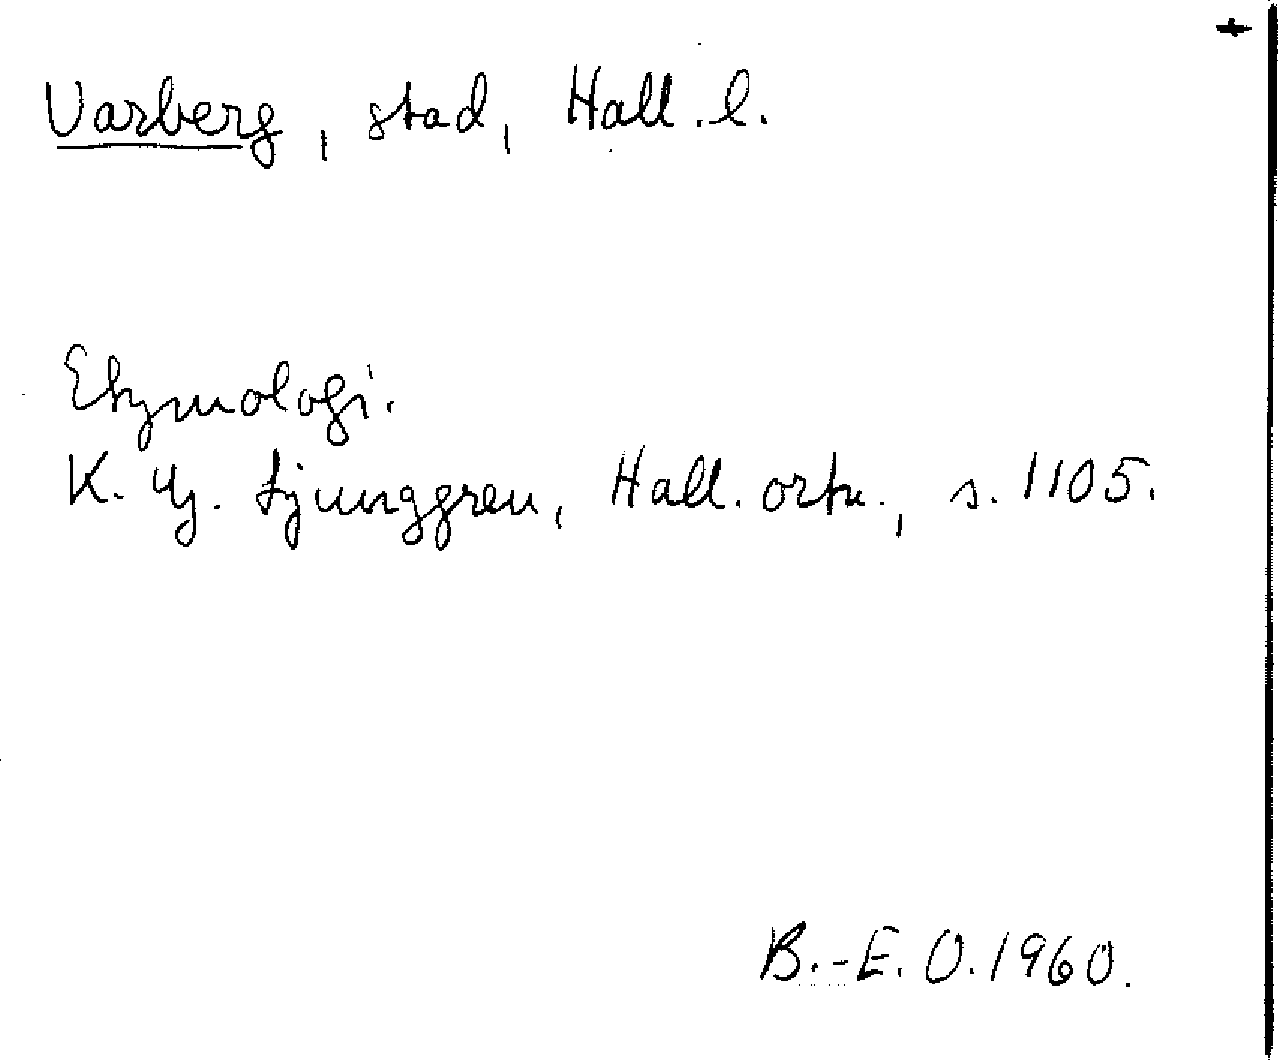 Varberg, stad, Hall. l.
Etymologi.
K. G. Ljunggren, Hall. ortn., s. 1105.
B.-E. O. 1960.